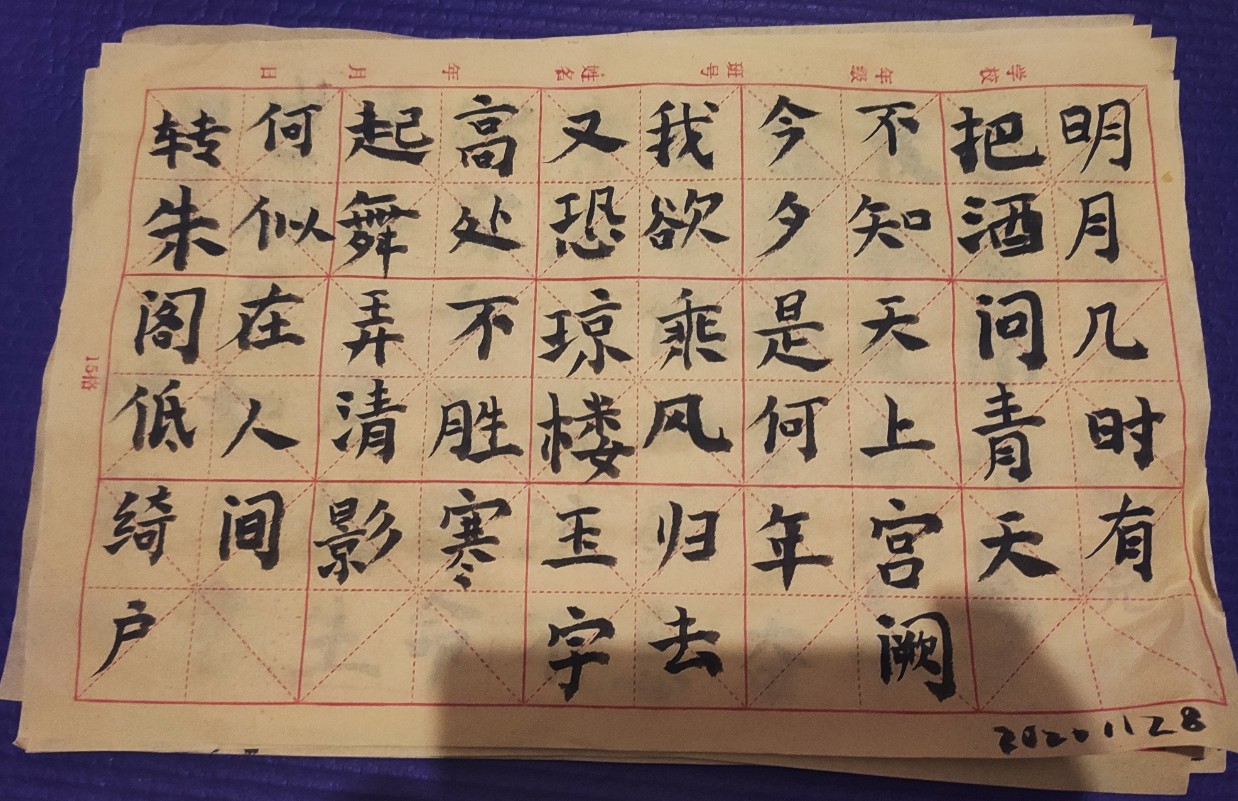 学校 年级 班号 姓名 年 月 日
明月几时有
把酒问青天
不知天上宫阙
今夕是何年
我欲乘风归去
又恐琼楼玉宇
高处不胜寒
起舞弄清影
何似在人间
转朱阁低绮户
20201128